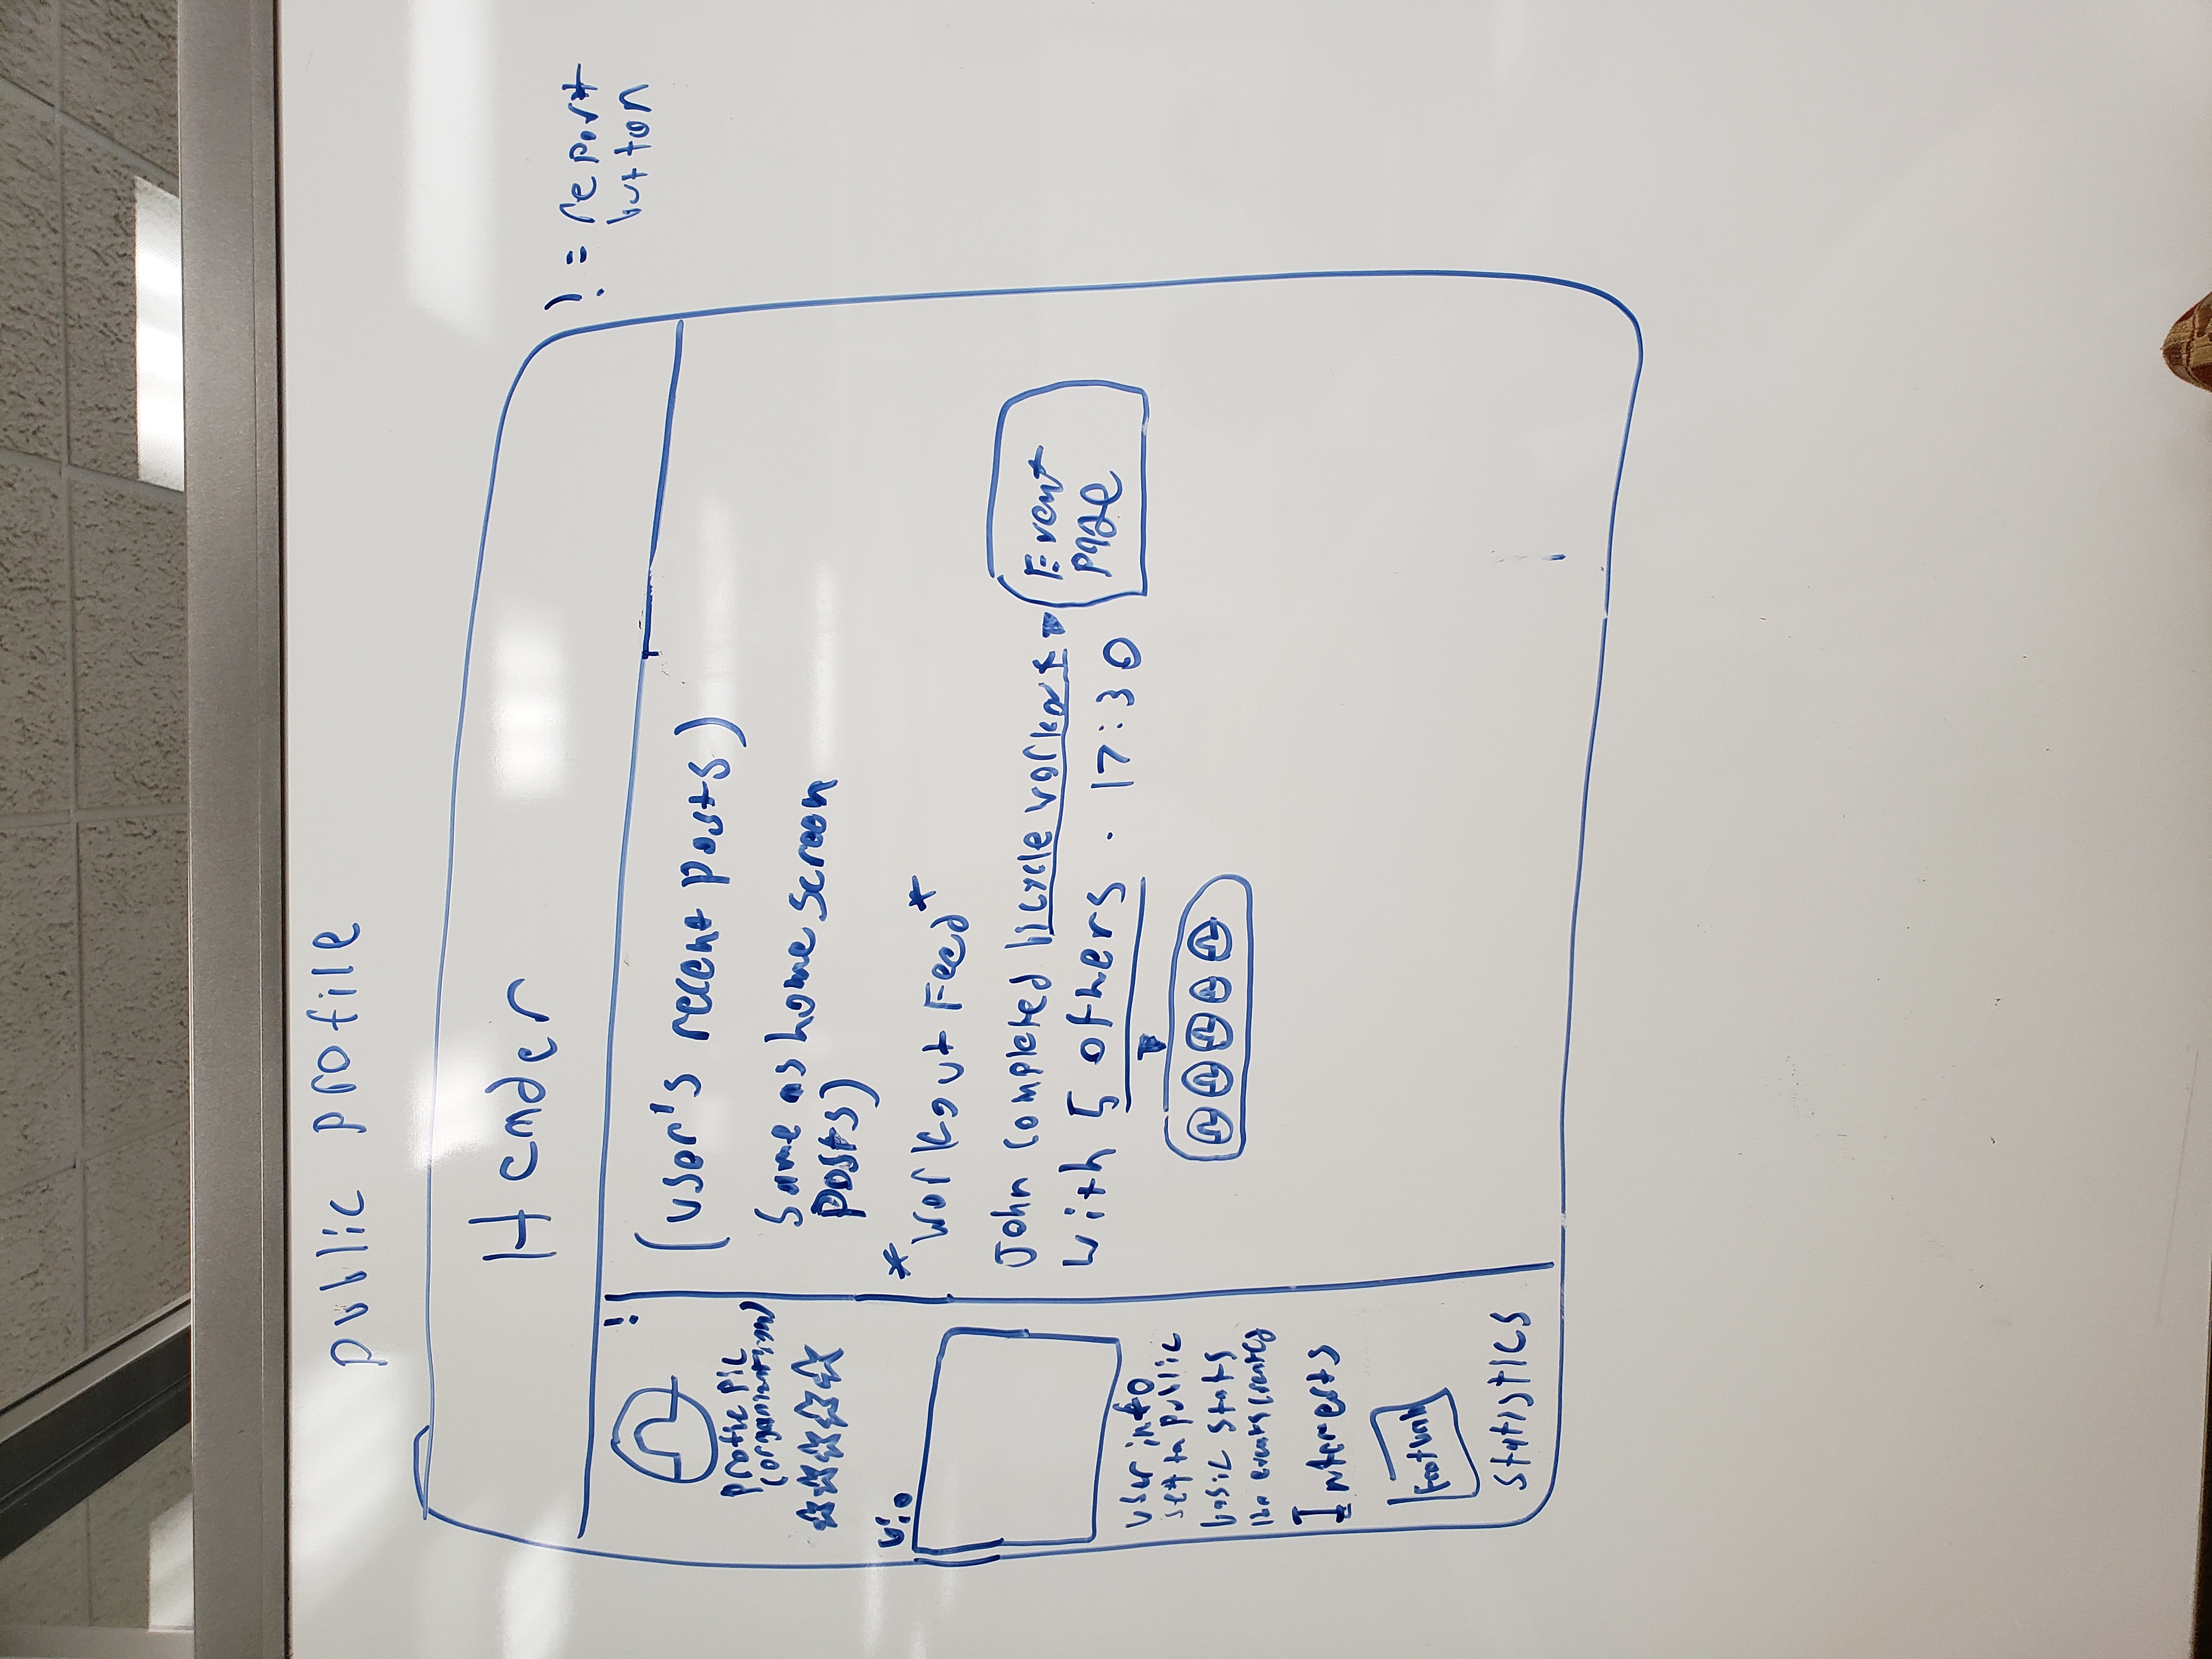 public profile
Header
! = report
button
!
profile pic
(organization)
bio
user info
set to public
basic stats
events created
Interests
Football
statistics
(user's recent posts)
Same as home screen
posts)
*Workout Feed*
John completed bicycle workout
with 5 others · 17:30
Event
page